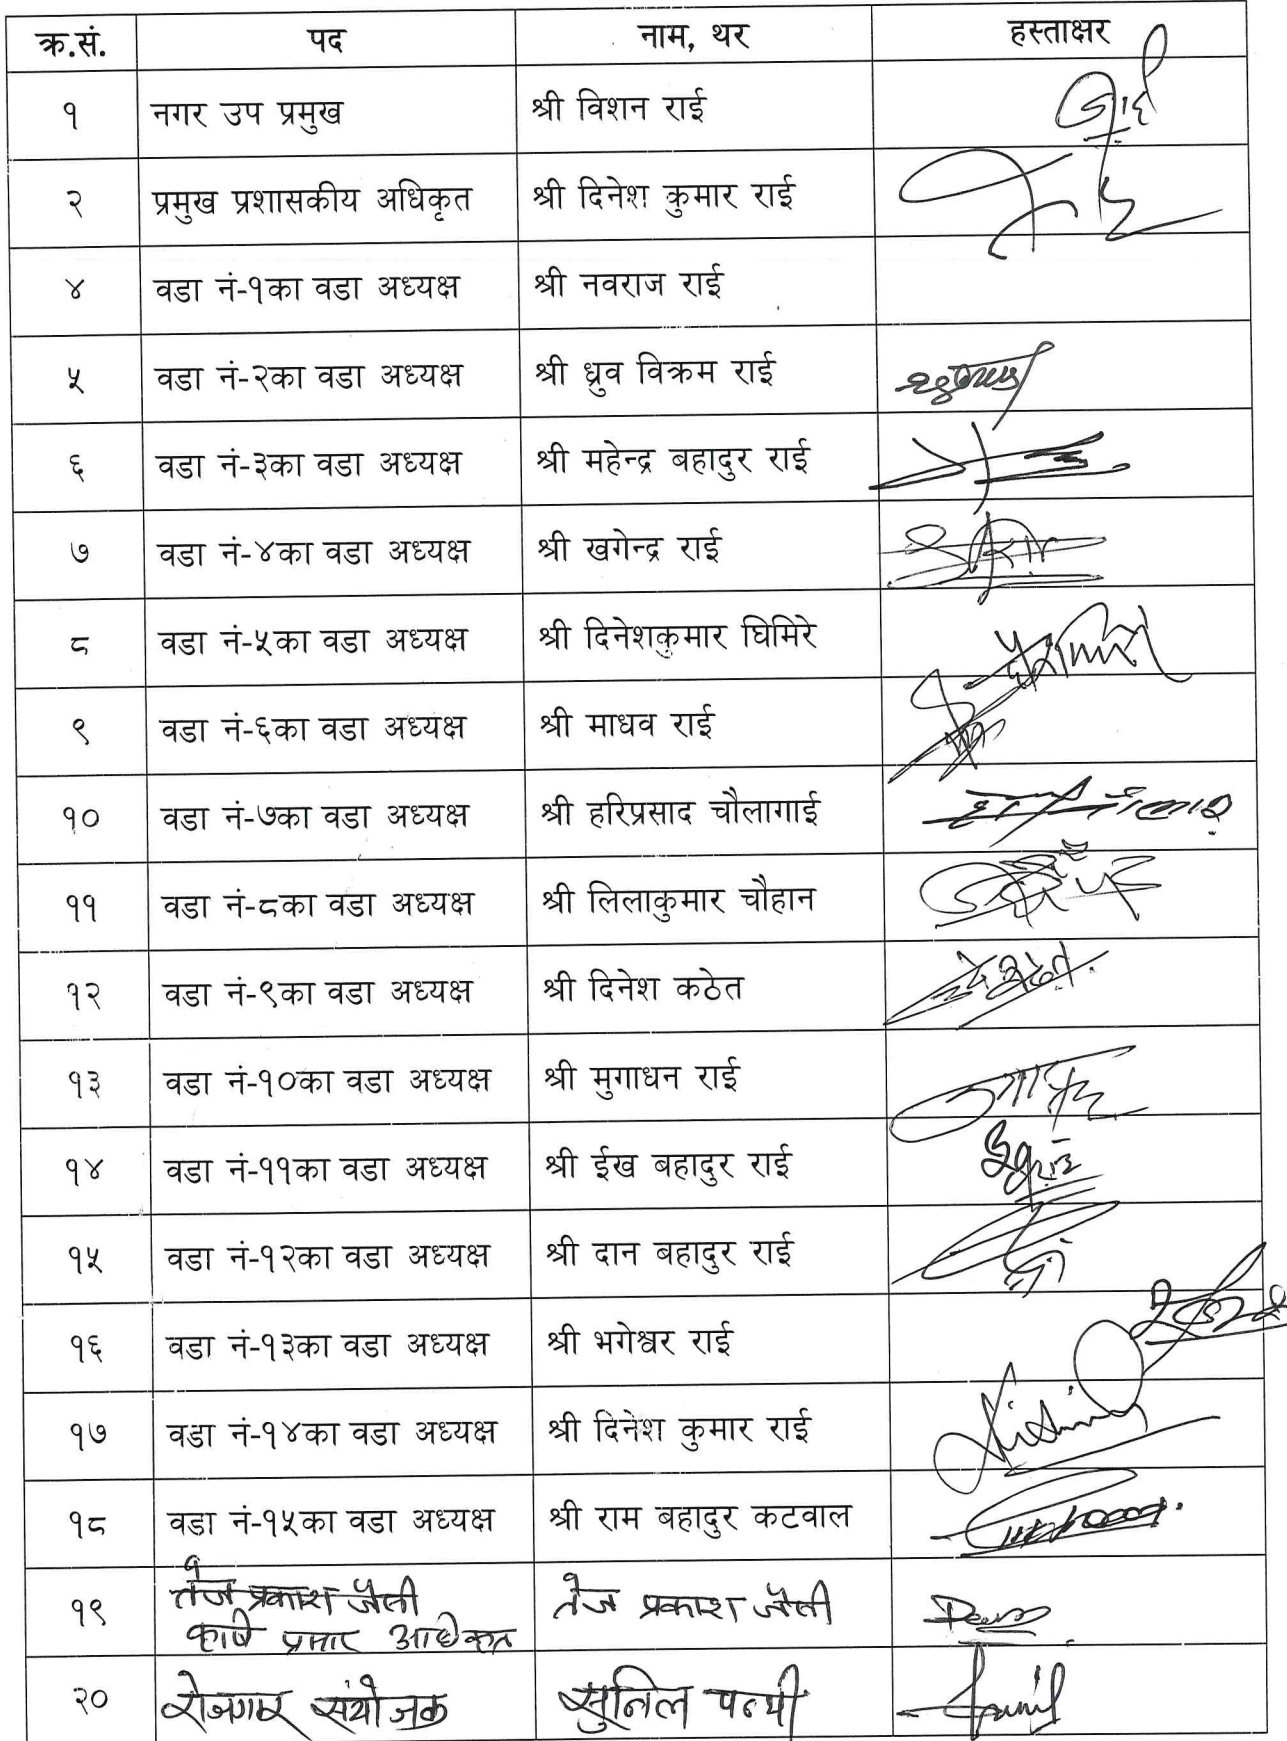 क्र.सं. पद नाम, थर हस्ताक्षर
१ नगर उप प्रमुख श्री विशन राई
२ प्रमुख प्रशासकीय अधिकृत श्री दिनेश कुमार राई
४ वडा नं-१का वडा अध्यक्ष श्री नवराज राई
५ वडा नं-२का वडा अध्यक्ष श्री ध्रुव विक्रम राई
६ वडा नं-३का वडा अध्यक्ष श्री महेन्द्र बहादुर राई
७ वडा नं-४का वडा अध्यक्ष श्री खगेन्द्र राई
८ वडा नं-५का वडा अध्यक्ष श्री दिनेशकुमार घिमिरे
९ वडा नं-६का वडा अध्यक्ष श्री माधव राई
१० वडा नं-७का वडा अध्यक्ष श्री हरिप्रसाद चौलागाई
११ वडा नं-८का वडा अध्यक्ष श्री लिलाकुमार चौहान
१२ वडा नं-९का वडा अध्यक्ष श्री दिनेश कठेत
१३ वडा नं-१०का वडा अध्यक्ष श्री मुगाधन राई
१४ वडा नं-११का वडा अध्यक्ष श्री ईख बहादुर राई
१५ वडा नं-१२का वडा अध्यक्ष श्री दान बहादुर राई
१६ वडा नं-१३का वडा अध्यक्ष श्री भगेश्वर राई
१७ वडा नं-१४का वडा अध्यक्ष श्री दिनेश कुमार राई
१८ वडा नं-१५का वडा अध्यक्ष श्री राम बहादुर कटवाल
१९ तेज प्रकाश जैसी तेज प्रकाश जैसी
कृषि प्रसार अधिकृत
२० रोजगार संयोजक सुनिल पन्थी